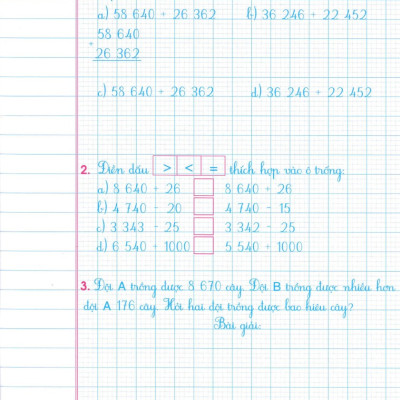 a) 58 640 + 26 362 b) 36 246 + 22 452
58 640
+
26 362
c) 58 640 + 26 362 d) 36 246 + 22 452
2. Điền dấu > < = thích hợp vào ô trống:
a) 8 640 + 26 8 640 + 26
b) 4 740 - 20 4 740 - 15
c) 3 343 - 25 3 342 - 25
d) 6 540 + 1000 5 540 + 1000
3. Đội A trồng được 8 670 cây. Đội B trồng được nhiều hơn
đội A 176 cây. Hỏi hai đội trồng được bao nhiêu cây?
Bài giải: